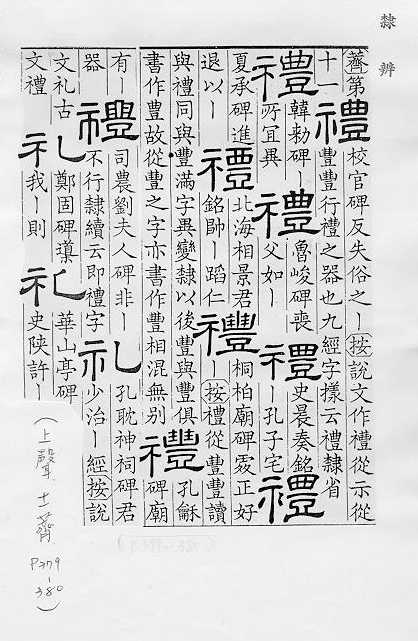 隸辨
薺第十一
禮 校官碑反失俗之丨按說文作禮從示從
豐豐行禮之器也九經字樣云禮隸省
禮 韓勑碑丨所冝異
禮 魯峻碑喪父如丨
禮 史晨奏銘丨孔子宅
禮
夏承碑進退以丨
禮 北海相景君銘帥丨蹈仁
禮 桐柏廟碑正好丨按禮從豐豐讀
與禮同與豐滿字異變隸以後豐與豐俱
書作豊故從豐之字亦書作豊相混無別
禮 孔龢碑廟有丨器
禮 司農劉夫人碑非丨不行隸續云即禮字
礼 孔耽神祠碑君少治丨經按說
文礼古文禮
礼 鄭固碑我丨則
礼 華山亭碑史陝許丨
(上聲 十一薺
P379
-380)